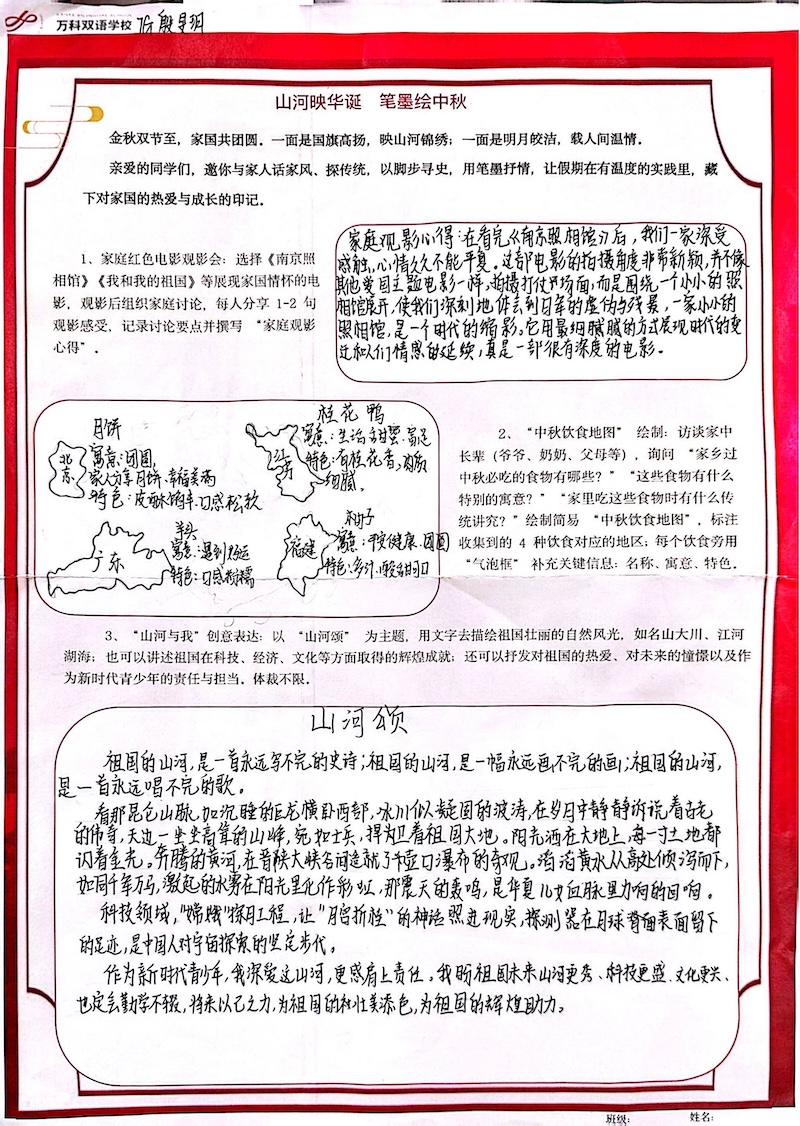 万科双语学校
山河映华诞 笔墨绘中秋
金秋双节至，家国共团圆。一面是国旗高扬，映山河锦绣；一面是明月皎洁，载人间温情。
亲爱的同学们，邀你与家人话家风、探传统，以脚步寻史，用笔墨抒情，让假期在有温度的实践里，藏
下对家国的热爱与成长的印记。
1、家庭红色电影观影会：选择《南京照
相馆》《我和我的祖国》等展现家国情怀的电
影，观影后组织家庭讨论，每人分享 1-2 句
观影感受，记录讨论要点并撰写 “家庭观影
心得”。
家庭观影心得：在看完《南京照相馆》后，我们一家深受
感触，心情久久不能平复。这部电影的拍摄角度非常新颖，并不像
其他爱国主题电影一样，拍摄打仗的场面，而是围绕一个小小的照
相馆展开，使我们深刻地体会到日军的虚伪与残暴，一家小小的
照相馆，是一个时代的缩影。它用最细腻的方式展现时代的变
迁和人们情感的延续，真是一部很有深度的电影。
月饼
北京
寓意：团圆，
家人分享月饼、幸福美满
特色：皮酥馅丰、口感松软
桂花鸭
江苏
寓意：生活甜蜜、富足
特色：有桂花香，肉质
细腻。
芋头
广东
寓意：遇到好运
特色：口感粉糯
柚子
福建
寓意：平安健康、团圆
特色：多汁、酸甜可口
2、“中秋饮食地图” 绘制：访谈家中
长辈（爷爷、奶奶、父母等），询问 “家乡过
中秋必吃的食物有哪些？” “这些食物有什么
特别的寓意？” “家里吃这些食物时有什么传
统讲究？” 绘制简易 “中秋饮食地图”，标注
收集到的 4 种饮食对应的地区；每个饮食旁用
“气泡框” 补充关键信息：名称、寓意、特色。
3、“山河与我” 创意表达：以 “山河颂” 为主题，用文字去描绘祖国壮丽的自然风光，如名山大川、江河
湖海；也可以讲述祖国在科技、经济、文化等方面取得的辉煌成就；还可以抒发对祖国的热爱、对未来的憧憬以及作
为新时代青少年的责任与担当。体裁不限。
山河颂
祖国的山河，是一首永远写不完的史诗；祖国的山河，是一幅永远画不完的画；祖国的山河，
是一首永远唱不完的歌。
看那昆仑山脉，如沉睡的巨龙横卧西部，冰川似凝固的波涛，在岁月中静静诉说着古老
的传奇，天边一坐坐高耸的山峰，宛如士兵，捍卫着祖国大地。阳光洒在大地上，每一寸土地都
闪着金光。奔腾的黄河，在晋陕大峡谷间造就了壶口瀑布的奇观。滔滔黄水从高处倾泻而下，
如同千军万马，激起的水雾在阳光里化作彩虹，那震天的轰鸣，是华夏儿女血脉里力响的回响。
科技领域，“嫦娥”探月工程，让“月宫折桂”的神话照进现实，探测器在月球背面表面留下
的足迹，是中国人对宇宙探索的坚定步伐。
作为新时代青少年，我深爱这山河，更感肩上责任。我盼祖国未来山河更秀、科技更盛、文化更兴、
也定会勤学不辍，将来以己之力，为祖国的壮美添色，为祖国的辉煌助力。
班级：
姓名：